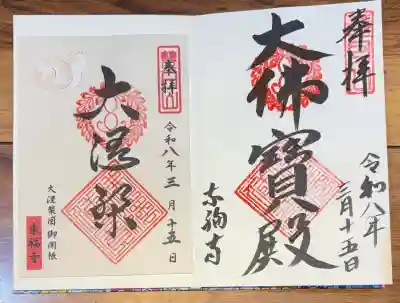 奉拝
令和八年
三月十五日
大佛寶殿
東福寺
奉拝
令和八年三月十五日
大涅槃
大涅槃図 御開帳
東福寺